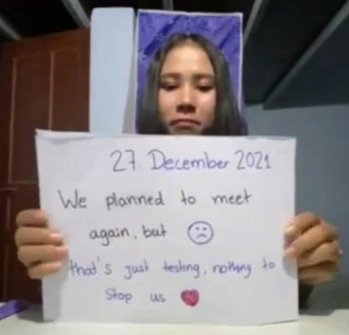 27 December 2021
We planned to meet
again, but
that's just testing, nothing to
Stop us